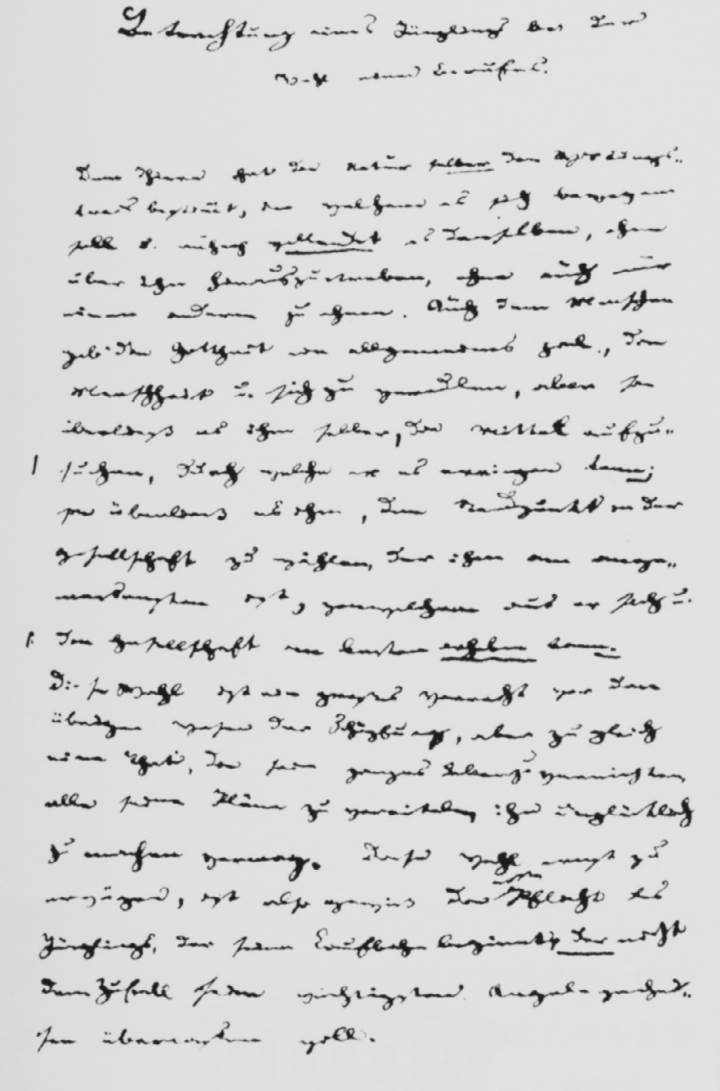 Betrachtung eines Jünglings bei der
Wahl eines Berufes.
Dem Thiere hat die Natur selber den Wirkungs-
kreis bestimmt, in welchem es sich bewegen
soll u. ruhig vollendet es denselben, ohne
über ihn hinauszustreben, ohne auch nur
einen anderen zu ahnen. Auch dem Menschen
gab die Gottheit ein allgemeines Ziel, die
Menschheit u. sich zu veredlen, aber sie
überließ es ihm selber, die Mittel aufzu-
suchen, durch welche er es erringen kann;
sie überließ es ihm, den Standpunkt in der
Gesellschaft zu wählen, der ihm am ange-
messensten ist, von welchem aus er sich u.
die Gesellschaft am besten erheben kann.
Diese Wahl ist ein großes Vorrecht vor den
übrigen Wesen der Schöpfung, aber zugleich
eine That, die sein ganzes Leben zu vernichten,
alle seine Pläne zu vereiteln, ihn unglücklich
zu machen vermag. Diese Wahl ernst zu
erwägen, ist also gewiß die erste Pflicht des
Jünglings, der seine Laufbahn beginnt, der nicht
dem Zufall seine wichtigsten Angelegenhei-
ten überlassen will.